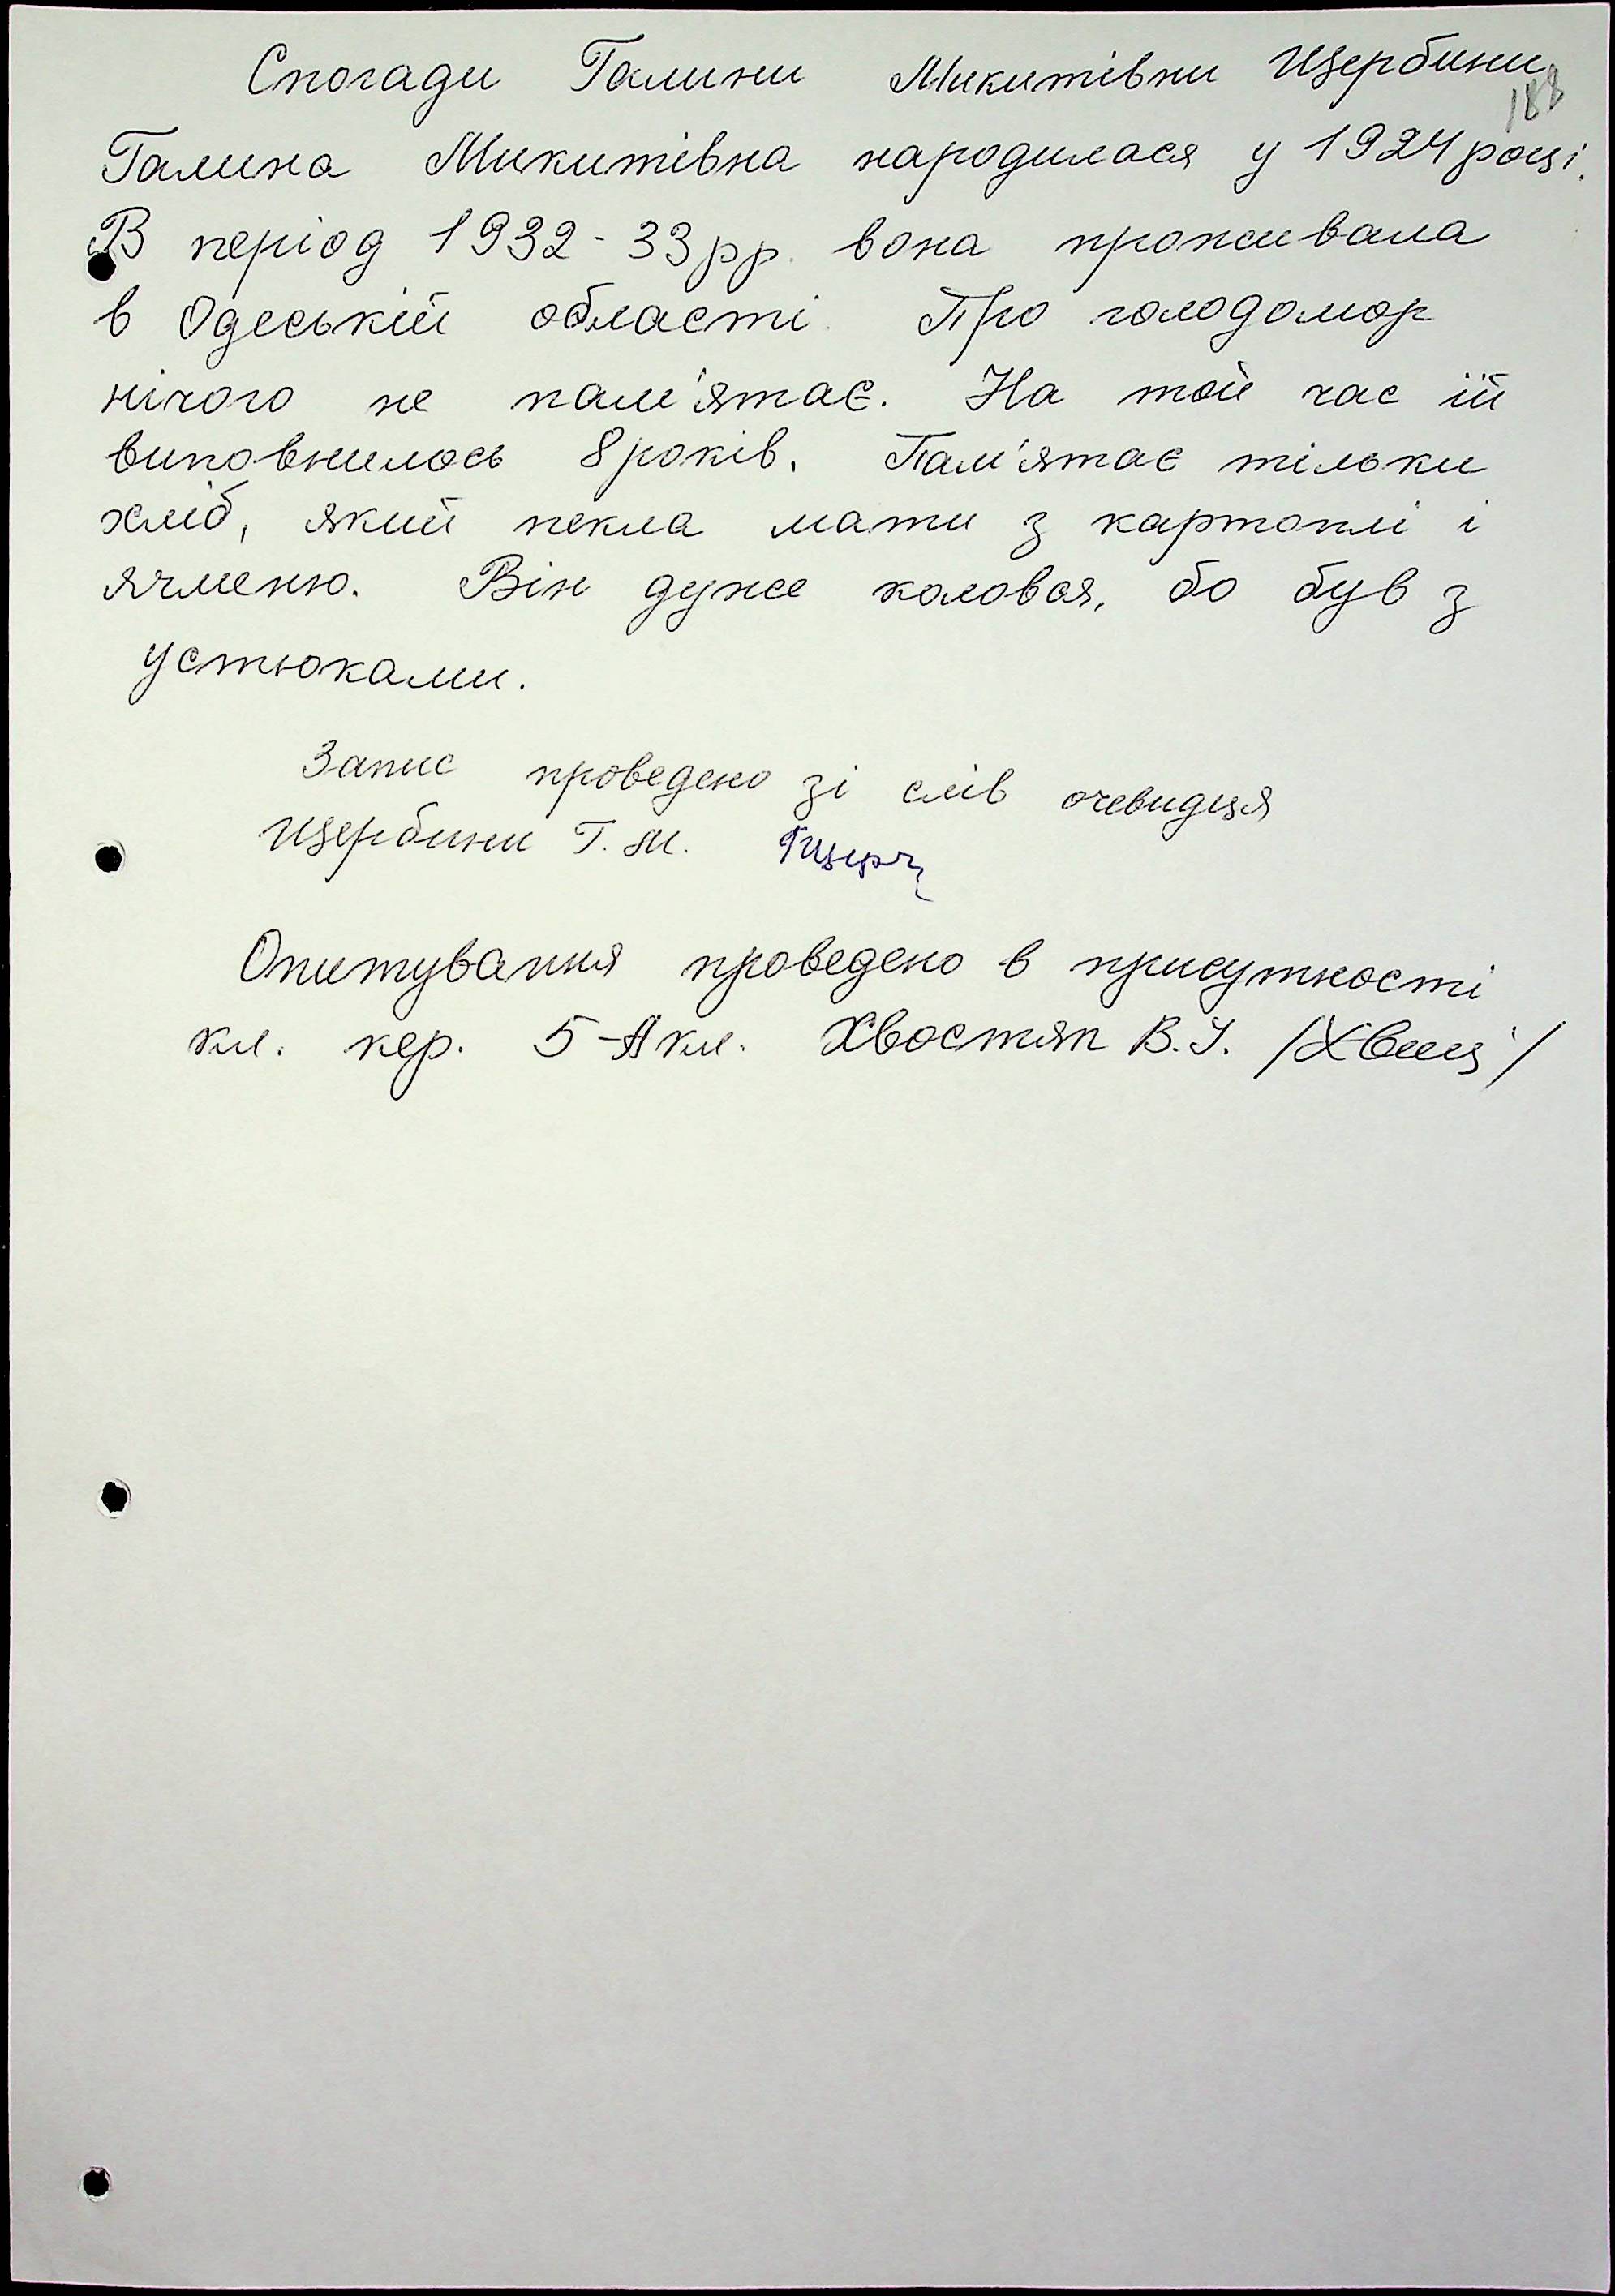 Спогади Галини Микитівни Щербини
188
Галина Микитівна народилася у 1924 році.
В період 1932-33 рр. вона проживала
в Одеській області. Про голодомор
нічого не пам'ятає. На той час їй
виповнилось 8 років. Пам'ятає тільки
хліб, який пекла мати з картоплі і
ячменю. Він дуже коловся, бо був з
устюками.
Запис проведено зі слів очевидця
Щербини Г. М.
Опитування проведено в присутності
кл. кер. 5-А кл. Хвостяк В. І.